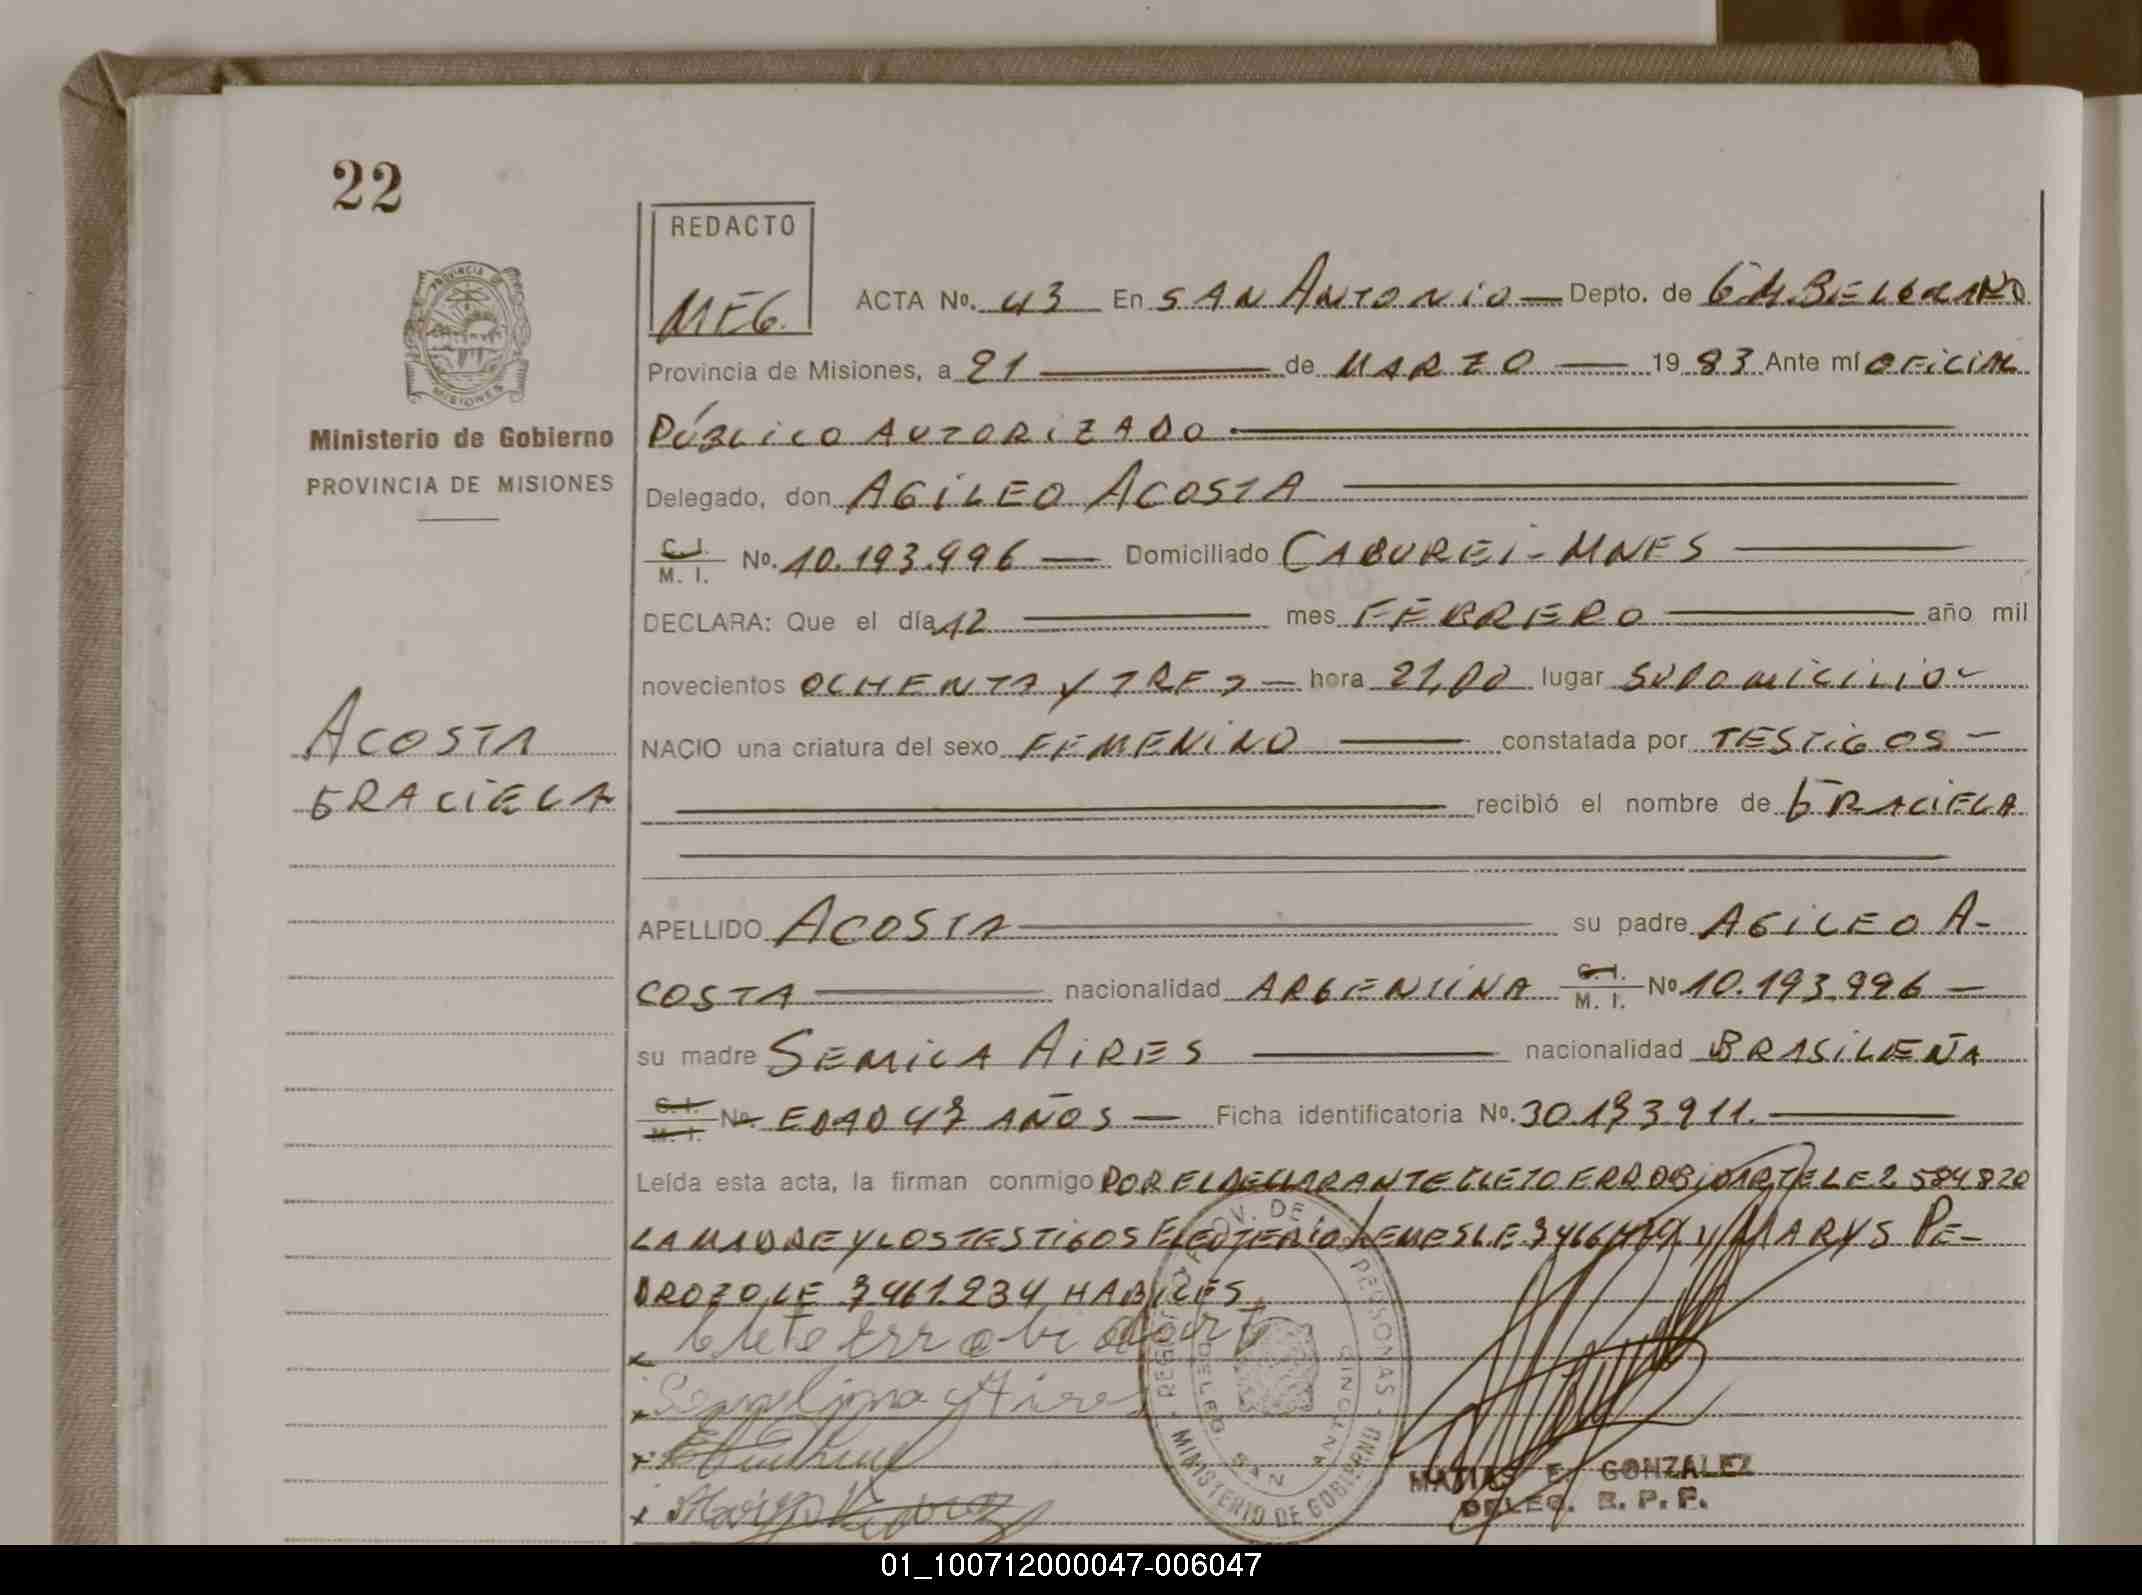 22
REDACTO
MEG.
PROVINCIA DE
MISIONES
Ministerio de Gobierno
PROVINCIA DE MISIONES
ACOSTA
GRACIELA
ACTA Nº. 43 En SAN ANTONIO — Depto. de G M. BELGRANO
Provincia de Misiones, a 21 — de MARZO — 19 83 Ante mí OFICIAL
PÚBLICO AUTORIZADO. —
Delegado, don AGILEO ACOSTA —
C. I. / M. I. Nº. 10.193.996 — Domiciliado CABUREI - MNES —
DECLARA: Que el día 12 — mes FEBRERO — año mil
novecientos OCHENTA Y TRES — hora 21,00 lugar SU DOMICILIO -
NACIO una criatura del sexo FEMENINO — constatada por TESTIGOS -
— recibió el nombre de GRACIELA
APELLIDO ACOSTA — su padre AGILEO A-
COSTA — nacionalidad ARGENTINA C. I. / M. I. Nº 10.193.996 —
su madre SEMILA AIRES — nacionalidad BRASILEÑA
C. I. / M. I. Nº. EDAD 47 AÑOS — Ficha identificatoria Nº. 30.193.911. —
Leída esta acta, la firman conmigo POR EL DECLARANTE CLETO ERROBIDART L E 2 584 820
LA MADRE Y LOS TESTIGOS ELEUTERIO LEMES LE Y MARYS PE-
DROZO LE 7461.234 HABILES
x Clete Errobidart
x Aires
x
x
PROV. DE PERSONAS
DELEG. SAN ANTONIO
MINISTERIO DE GOBIERNO
MATIAS E. GONZALEZ
DELEG. R. P. P.
01_100712000047-006047